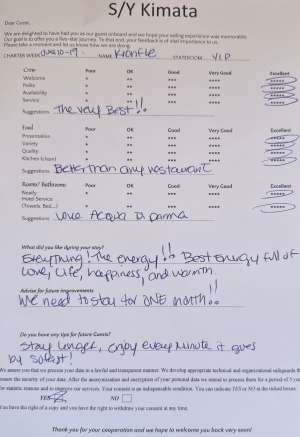 S/Y Kimata
Dear Guest,
We are delighted to have had you as our guest onboard and we hope your sailing experience was memorable.
Our goal is to offer you a five-star journey. To that end, your feedback is of vital importance to us.
Please take a moment and let us know how we are doing.
CHARTER WEEK June 10-17 NAME STATEROOM V.I.P
Crew Poor OK Good Very Good Excellent
Welcome * ** *** **** *****
Polite * ** *** **** *****
Availability * ** *** **** *****
Service * ** *** **** *****
Suggestions The very Best!!
Food Poor OK Good Very Good Excellent
Presentation * ** *** **** *****
Variety * ** *** **** *****
Quality * ** *** **** *****
Kitchen (clean) * ** *** **** *****
Suggestions Better than any restaurant
Rooms/ Bathrooms Poor OK Good Very Good Excellent
Neatly * ** *** **** *****
Hotel Service
(Towels, Bed...) * ** *** **** *****
Suggestions Love Acqua Di Parma
What did you like during your stay?
Everything! The energy!! Best energy full of
Love, Life, happiness, and warmth.
Advise for future improvements
We need to stay for ONE month!!
Do you have any tips for future Guests?
Stay longer, enjoy every minute it goes
by so fast!
We assure you that we process your data in a lawful and transparent manner. We develop appropriate technical and organizational safeguards th
ensure the security of your data. After the anonymization and encryption of your personal data we intend to process them for a period of 5 year
for statistic reasons and to improve our services. Your consent is an indispensable condition. You can indicate YES or NO in the linked boxes.
YES NO
You have the right of a copy and you have the right to withdraw your consent at any time.
Thank you for your cooperation and we hope to welcome you back very soon!